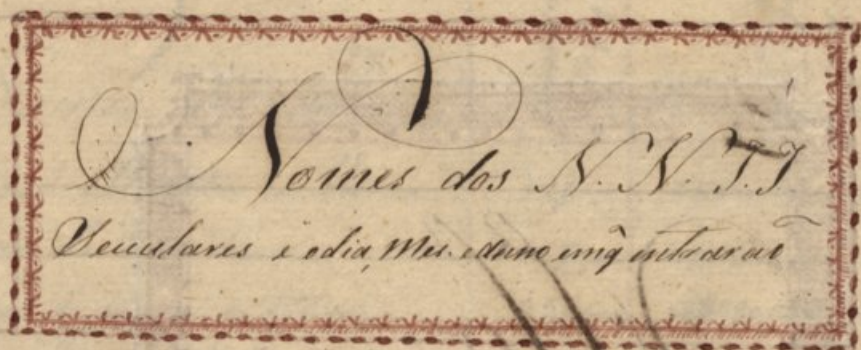 Nomes dos N. N. I.I
Seculares e odia, Mes. eanno emq̃ entraraõ